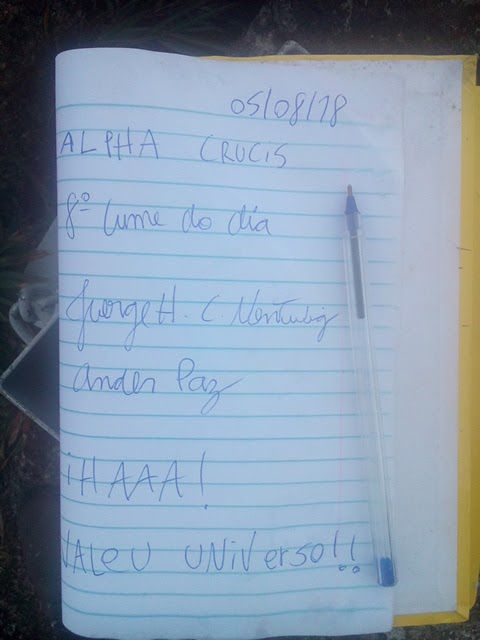 05/08/18
ALPHA CRUCIS
8º Cume do dia
Jurge H. C.
Ander Paz
iHAAA!
VALEU UNIVERSO!!